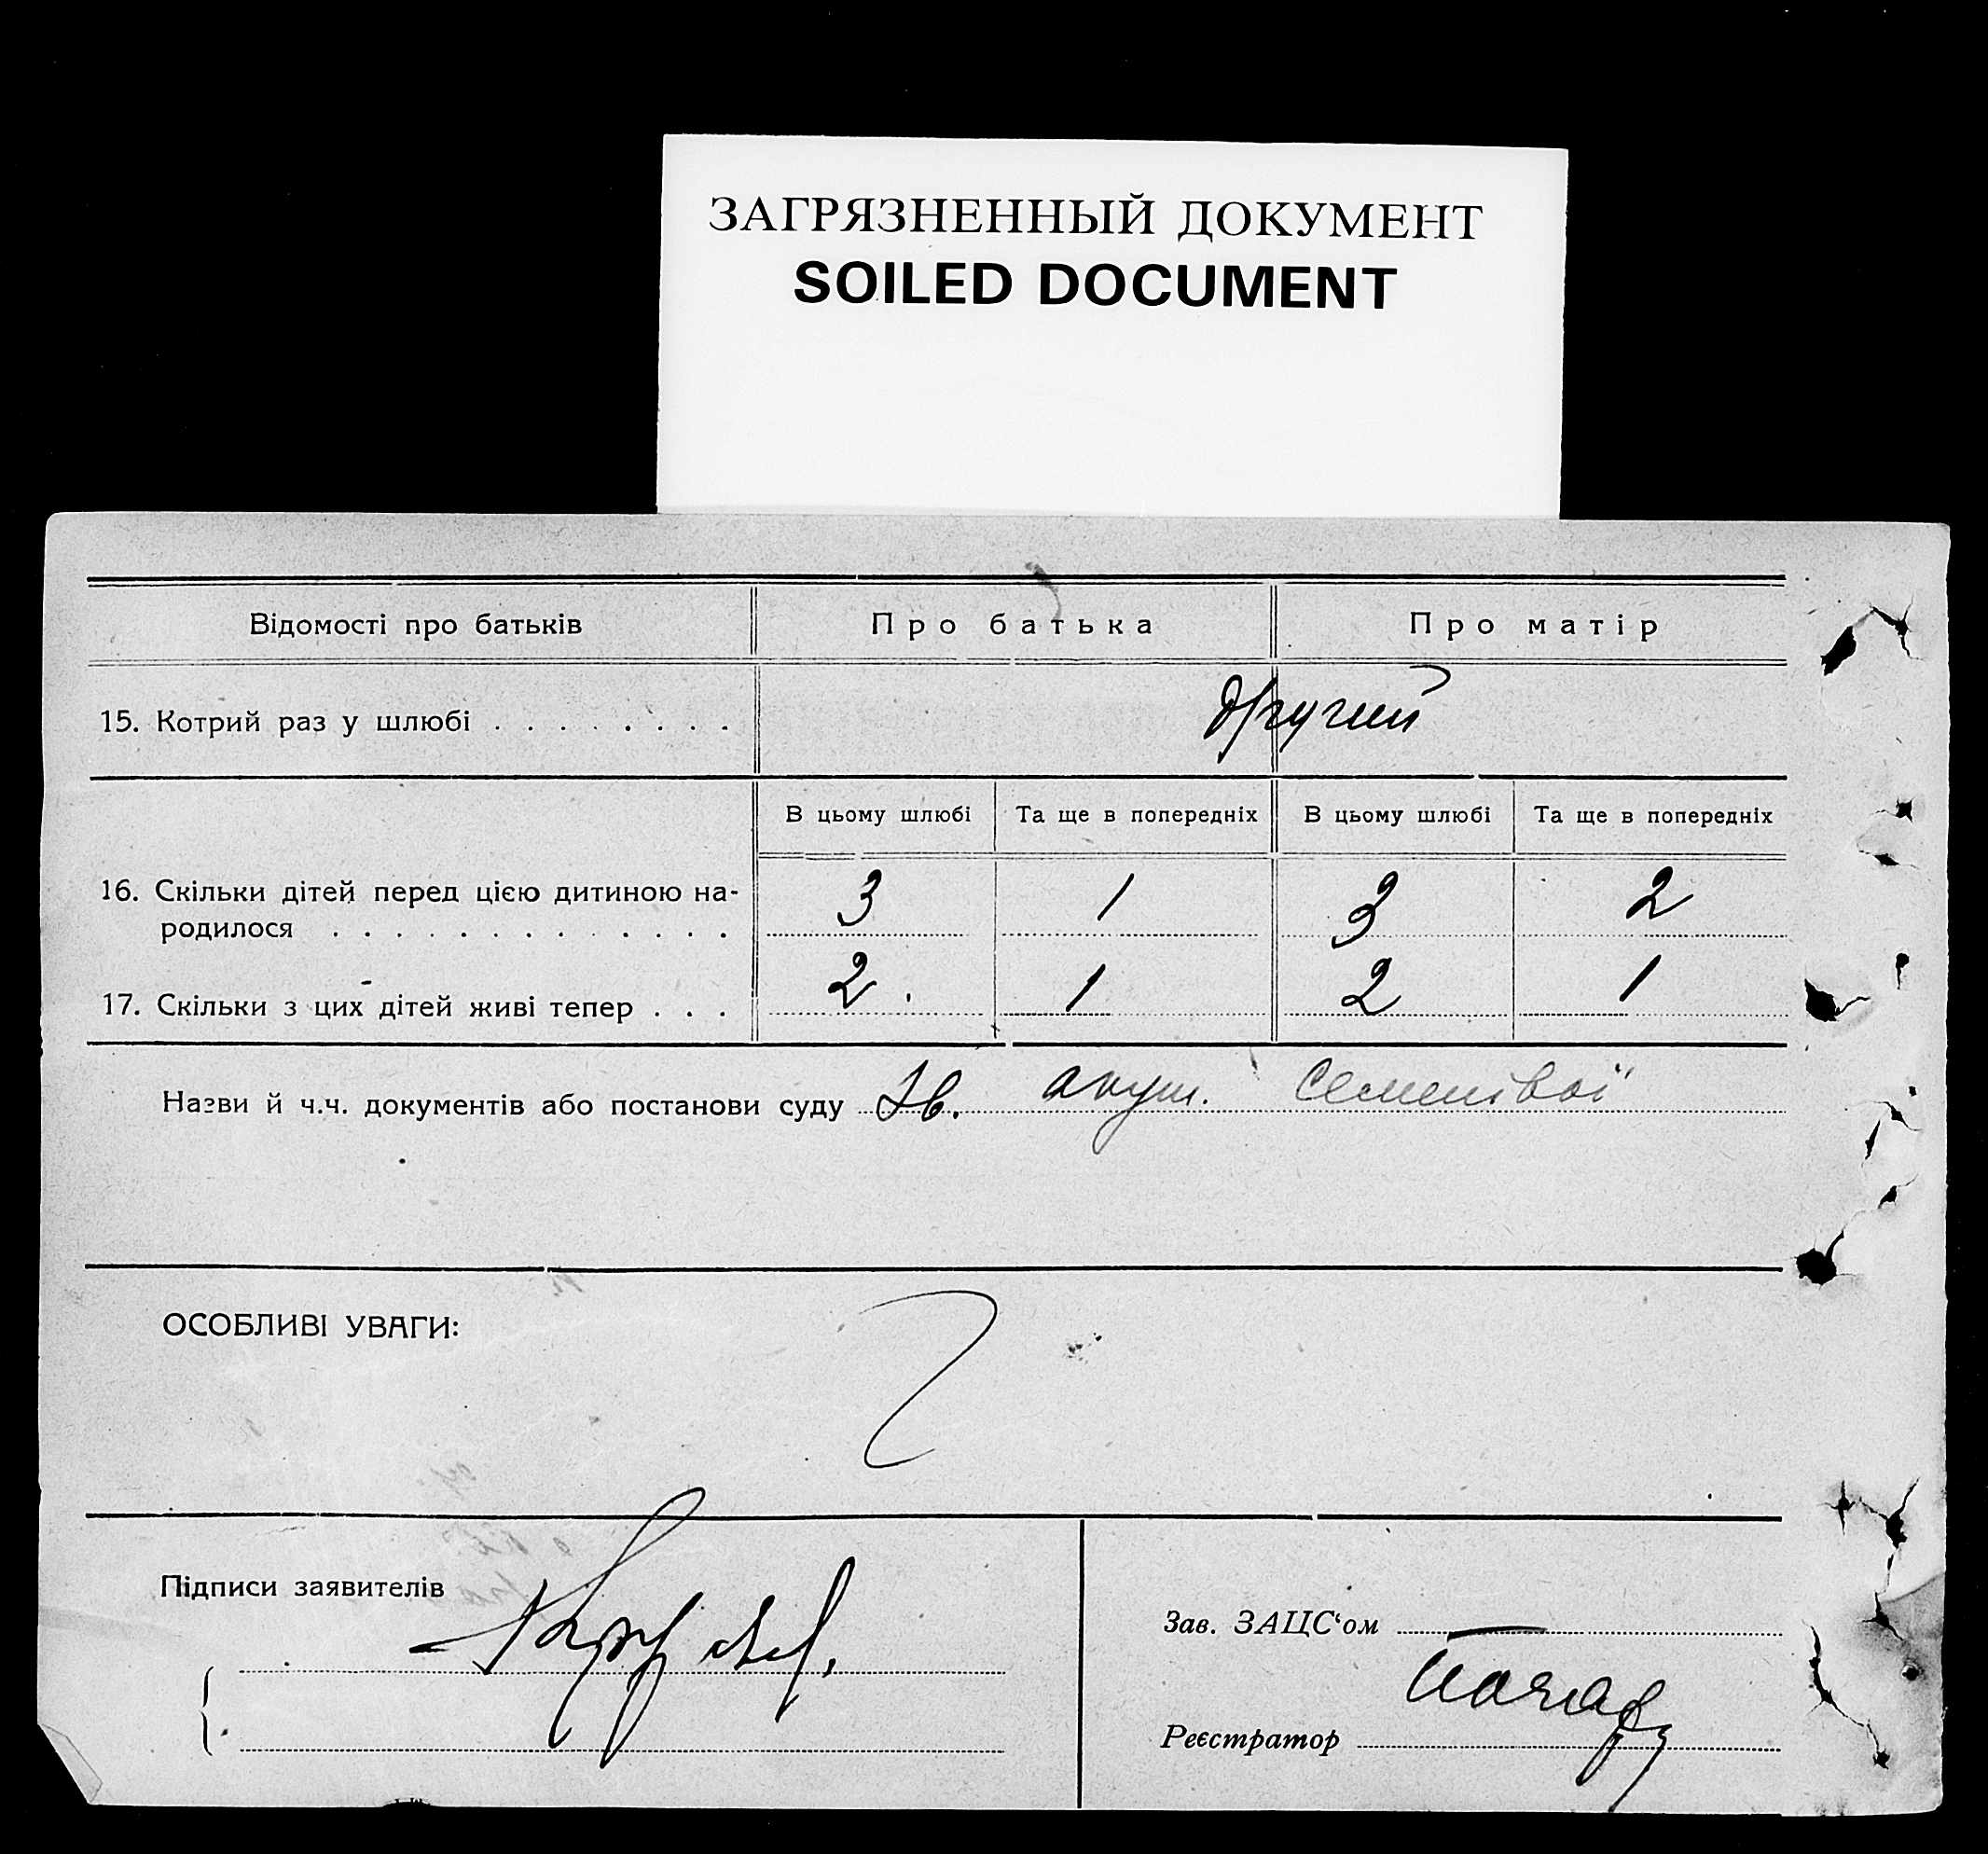 ЗАГРЯЗНЕННЫЙ ДОКУМЕНТ
SOILED DOCUMENT
Відомості про батьків Про батька Про матір
15. Котрий раз у шлюбі . . . . . . . . другий
В цьому шлюбі Та ще в попередніх В цьому шлюбі Та ще в попередніх
16. Скільки дітей перед цією дитиною на-
родилося . . . . . . . . . . . . . 3 1 3 2
17. Скільки з цих дітей живі тепер . . . 2 1 2 1
Назви й ч.ч. документів або постанови суду Зв. акуш.
ОСОБЛИВІ УВАГИ:
Підписи заявителів
Зав. ЗАЦС‘ом
Реєстратор